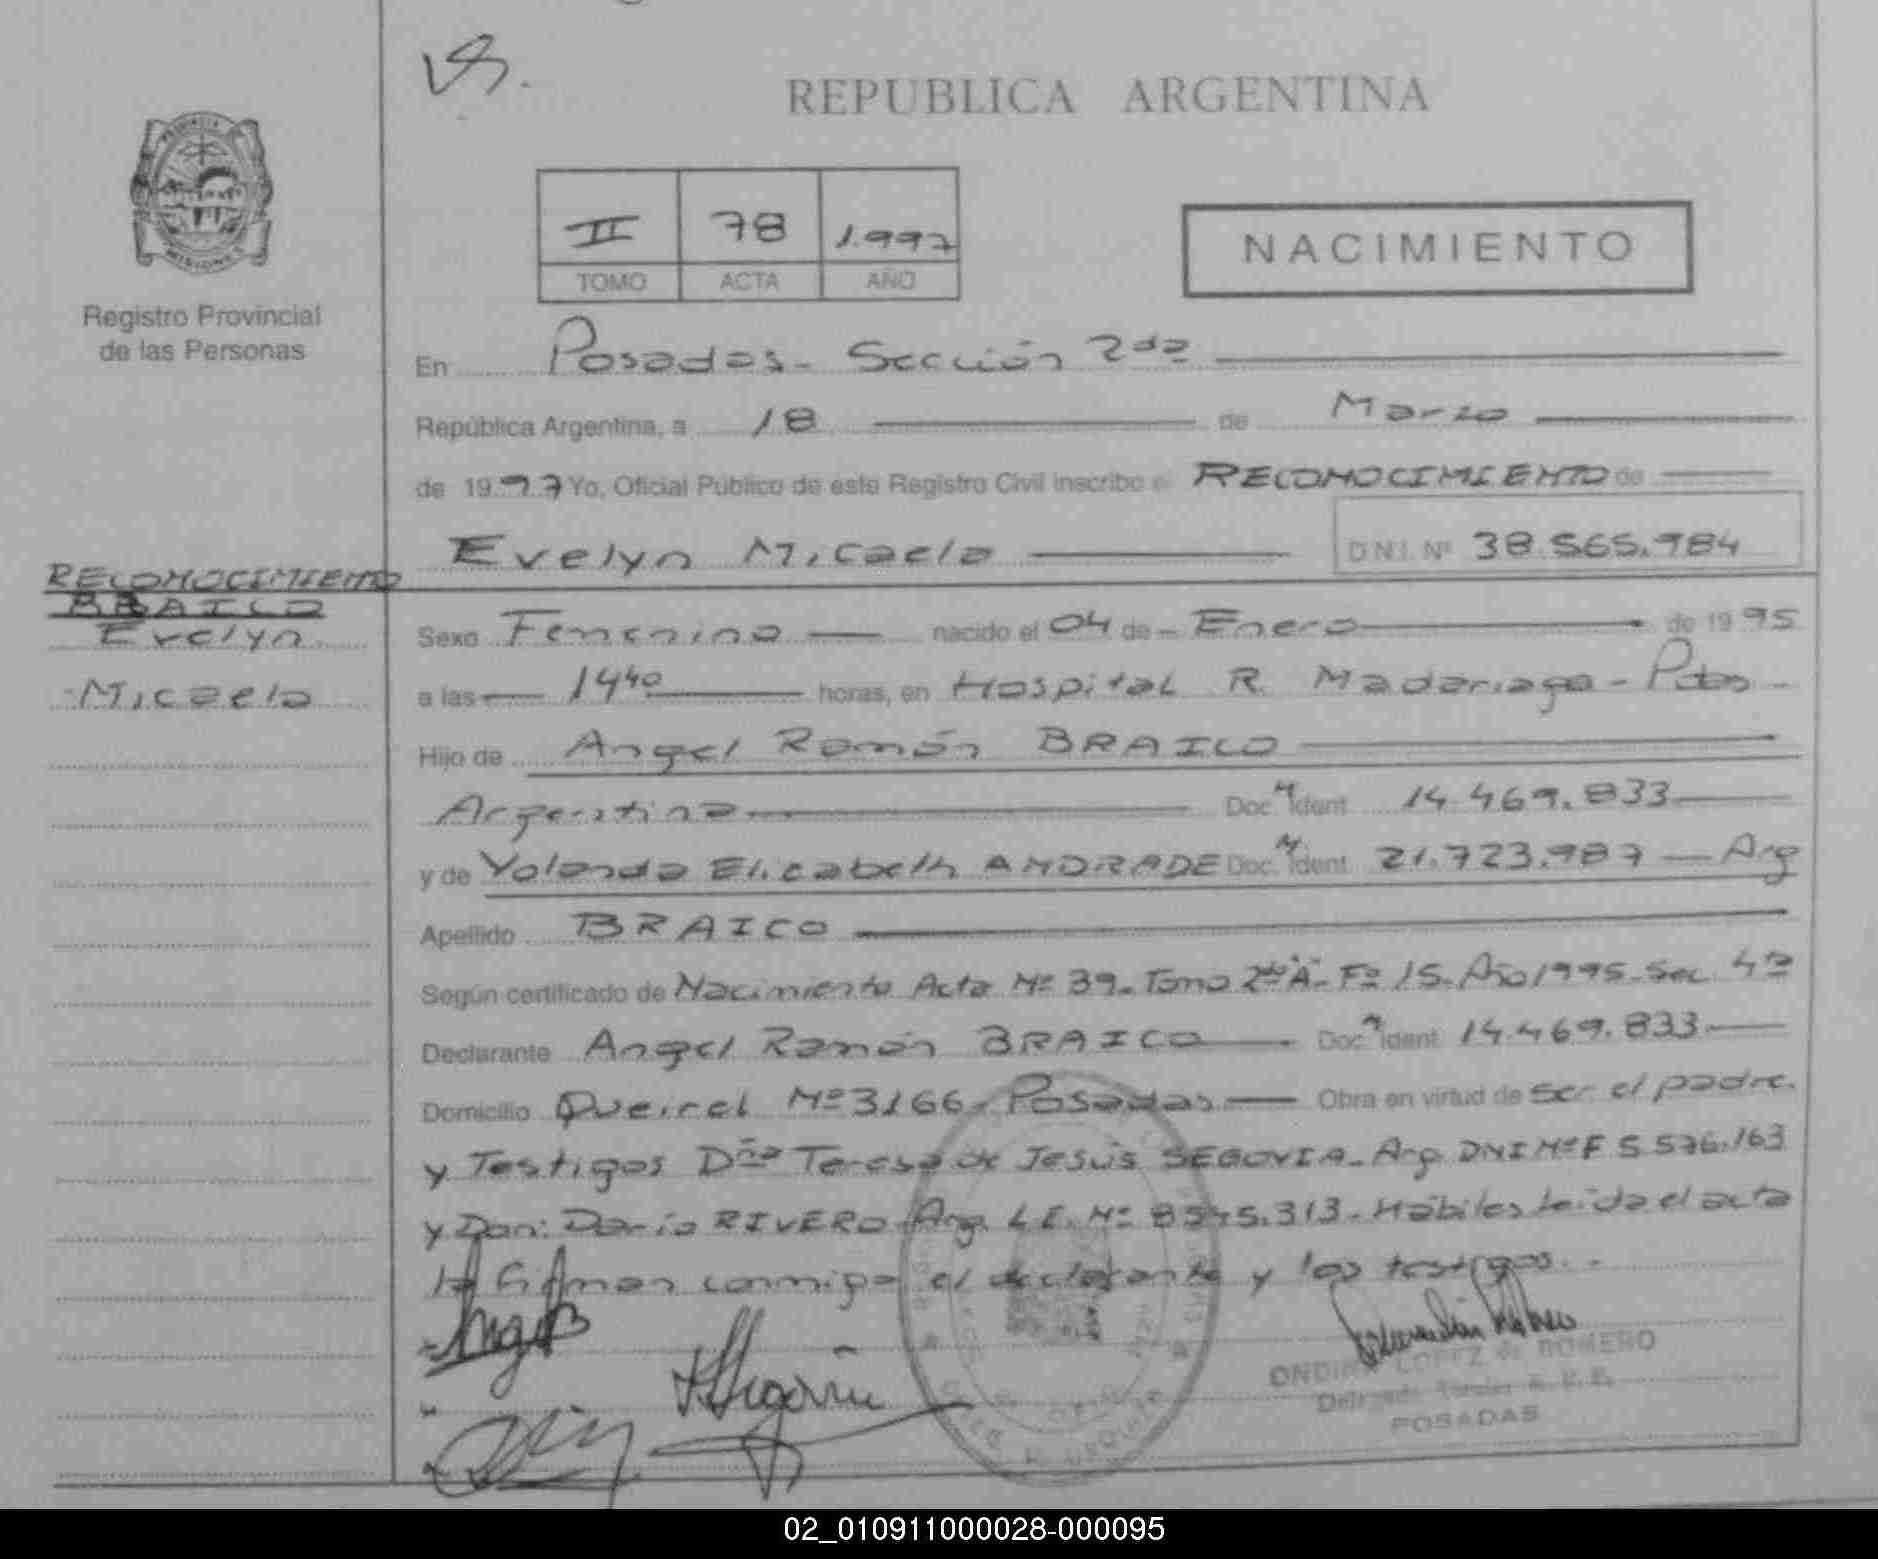 REPUBLICA ARGENTINA
II 78 1.997
TOMO ACTA AÑO
NACIMIENTO
PROVINCIA
MISIONES
Registro Provincial
de las Personas
En Posadas - Sección 2da
República Argentina, a 18 de Marzo
de 1997 Yo, Oficial Público de este Registro Civil inscribo el RECONOCIMIENTO de
Evelyn Micaela D.N.I. Nº 38.565.984
RECONOCIMIENTO
BRAICO
Evelyn
Micaela
Sexo Femenino nacido el 04 de Enero de 1995
a las 14 40 horas, en Hospital R. Madariaga - Pdas -
Hijo de Angel Ramón BRAICO
Argentina Doc. Ident. 14.469.833
y de Yolanda Elizabeth ANDRADE Doc. Ident. 21.723.987 - Arg
Apellido BRAICO
Según certificado de Nacimiento Acta Nº 39 - Tomo 2do "A" - Fº 15 - Año 1995 - Sec. 4ta
Declarante Angel Ramón BRAICO Doc. Ident. 14.469.833
Domicilio Queirel Nº 3166 - Posadas Obra en virtud de ser el padre.
y Testigos Dña Teresa de Jesús SEGOVIA - Arg. DNI Nº F 5.576.163
y Don: Darío RIVERO - Arg. L.E. Nº 8.545.313 - Hábiles leída el acta
la firman conmigo el declarante y los testigos. -
LOPEZ de ROMERO
POSADAS
02_010911000028-000095